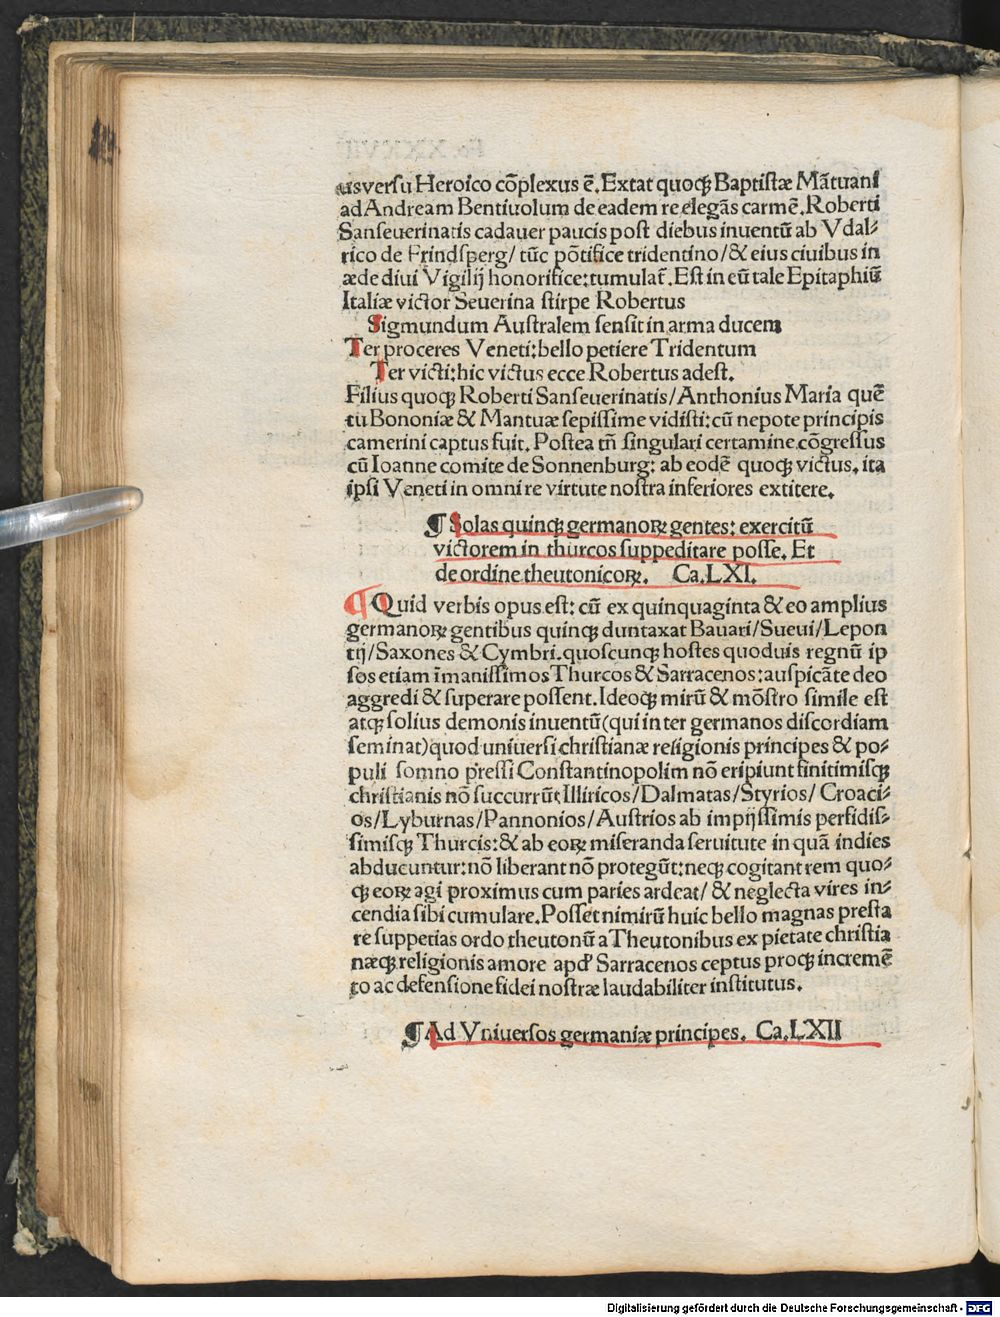 us versu Heroico cõplexus ẽ. Extat quoqꝫ Baptistæ Mãtuani
ad Andream Bentiuolum de eadem re elegãs carmẽ. Roberti
Sanseuerinatis cadauer paucis post diebus inuentũ ab Vdal⸗
rico de Frindsperg/ tũc põtifice tridentino/ & eius ciuibus in
æde diui Vigilij honorifice: tumulat᷑. Est in eũ tale Epitaphiũ
Italiæ victor Seuerina stirpe Robertus
Sigmundum Australem sensit in arma ducem
Ter proceres Veneti: bello petiere Tridentum
Ter victi: hic victus ecce Robertus adest.
Filius quoqꝫ Roberti Sanseuerinatis/ Anthonius Maria quẽ
tu Bononiæ & Mantuæ sepissime vidisti: cũ nepote principis
camerini captus fuit. Postea tñ singulari certamine cõgressus
cũ Ioanne comite de Sonnenburg: ab eodẽ quoqꝫ victus. ita
ipsi Veneti in omni re virtute nostra inferiores extitere.
¶ Solas quinqꝫ germanoꝝ gentes: exercitũ
victorem in thurcos suppeditare posse. Et
de ordine theutonicoꝝ. Ca. LXI.
¶ Quid verbis opus est: cũ ex quinquaginta & eo amplius
germanoꝝ gentibus quinqꝫ duntaxat Bauari/ Sueui/ Lepon
tij/ Saxones & Cymbri. quoscunqꝫ hostes quoduis regnũ ip
sos etiam ĩmanissimos Thurcos & Sarracenos: auspicãte deo
aggredi & superare possent. Ideoqꝫ mirũ & mõstro simile est
atqꝫ solius demonis inuentũ (qui inter germanos discordiam
seminat) quod uniuersi christianæ religionis principes & po⸗
puli somno pressi Constantinopolim nõ eripiunt finitimisqꝫ
christianis nõ succurrũt Illiricos/ Dalmatas/ Styrios/ Croaci⸗
os/ Lyburnas/ Pannonios/ Austrios ab impijssimis perfidis⸗
simisqꝫ Thurcis: & ab eoꝝ miseranda seruitute in quã indies
abducuntur: nõ liberant nõ protegũt: neqꝫ cogitant rem quo⸗
qꝫ eoꝝ agi proximus cum paries ardeat/ & neglecta vires in⸗
cendia sibi cumulare. Posset nimirũ huic bello magnas presta
re suppetias ordo theutonũ a Theutonibus ex pietate christia
næqꝫ religionis amore apd' Sarracenos ceptus proqꝫ incremẽ
to ac defensione fidei nostræ laudabiliter institutus.
¶ Ad Vniuersos germaniæ principes. Ca. LXII
Digitalisierung gefördert durch die Deutsche Forschungsgemeinschaft - DFG